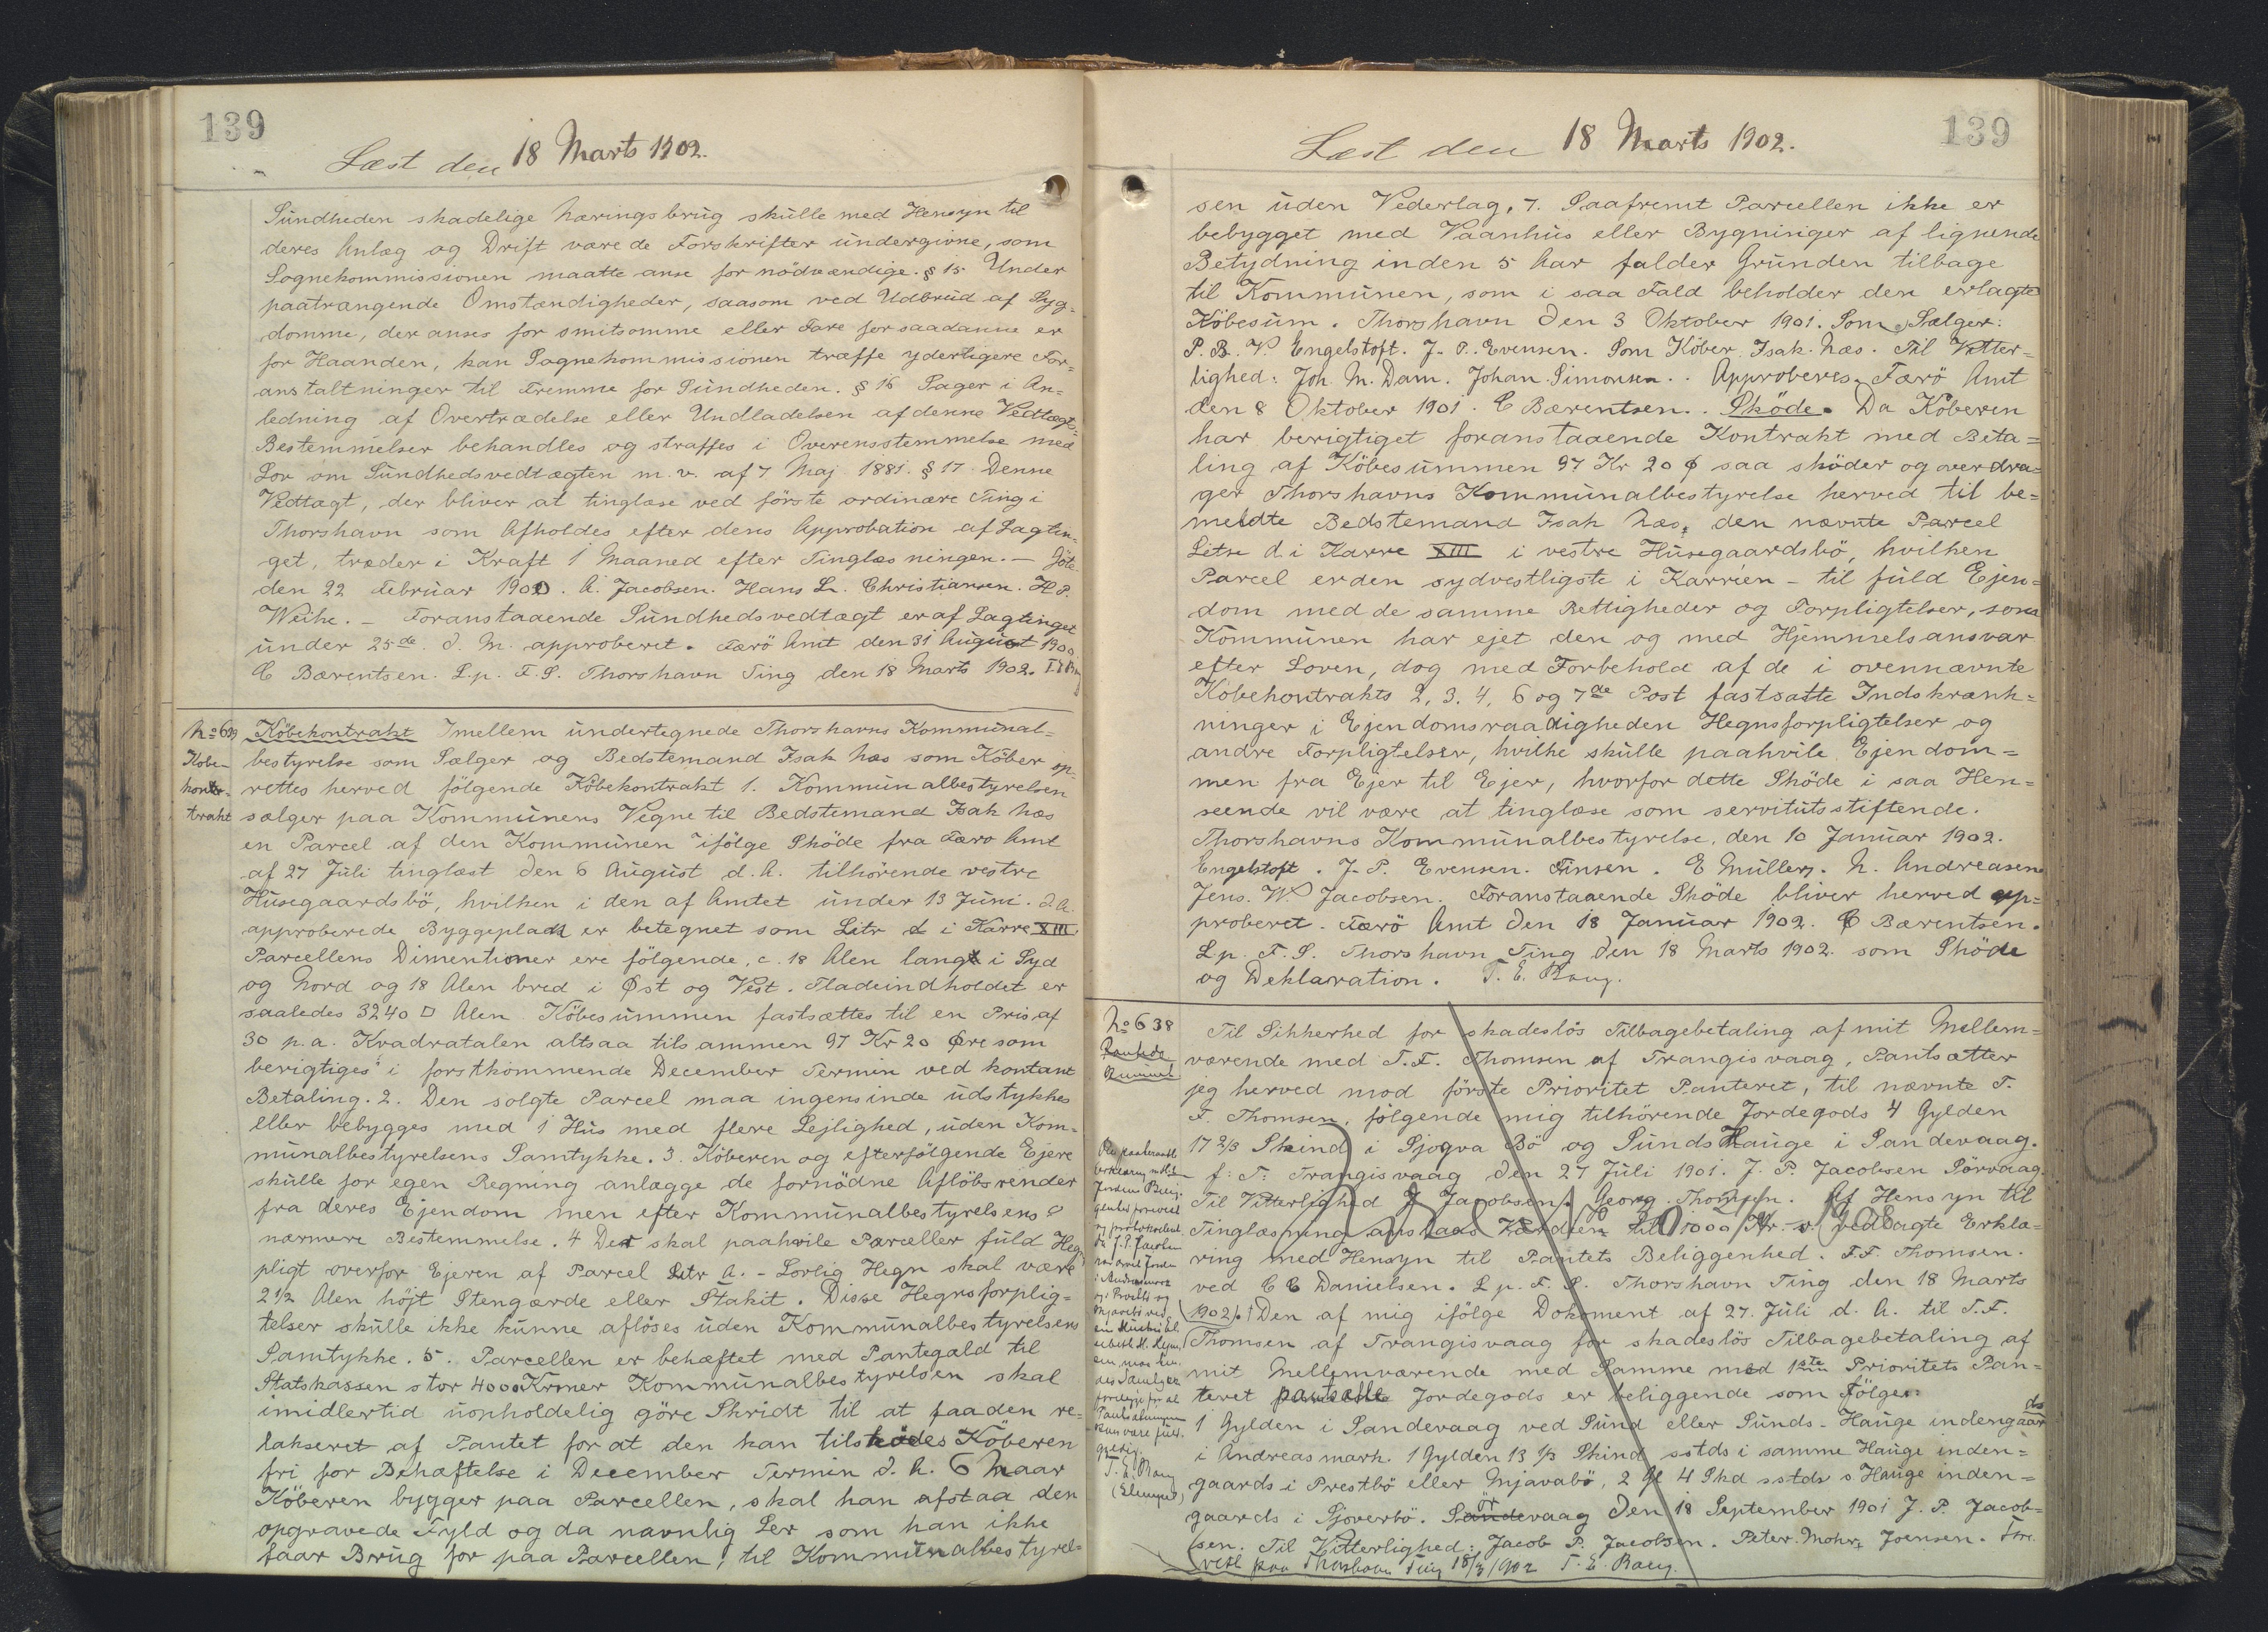 139
Læst den 18 Marts 1902.
Sundheden skadelige Næringsbrug skulle med Hensyn til
deres Anlæg og Drift være de Forskrifter undergivne, som
Sognekommissionen maatte anse for nödvændige. § 15 Under
paatrængende Omstændigheder, saasom ved Udbrud af Syg-
domme, der anses for smitsomme eller Fare for saadanne er
for Haanden, kan Sognekommissionen træffe yderligere For-
anstaltninger til Fremme for Sundheden. § 16 Sager i An-
ledning af Overtrædelse eller Undladelsen af denne Vedtægts-
Bestemmelser behandles og straffes i Overensstemmelse med
Lov om Sundhedsvedtægten m. v. af 7 Maj 1881. § 17 Denne
Vedtægt, der bliver at tinglæse ved förste ordinære Ting i
Thorshavn som Afholdes efter dens Approbation af Lagtin-
get, træder i Kraft 1 Maaned efter Tinglæsningen. — Göte
den 22 Februar 1900. A. Jacobsen. Hans L. Christiansen. H. P.
Weihe. — Foranstaaende Sundhedsvedtægt er af Lagtinget
under 25de d. M. approberet. Færö Amt den 31 August 1900
C Bærentsen. L.p. F. S. Thorshavn Ting den 18 Marts 1902.
Köbekontrakt Imellem undertegnede Thorshavns Kommunal=
Köbe-
kon-
trakt
bestyrelse som Sælger og Bedstemand Isak Næs som Köber op-
rettes herved fölgende Köbekontrakt 1. Kommunalbestyrelsen
sælger paa Kommunens Vegne til Bedstemand Isak Næs
en Parcel af den Kommunen ifölge Sköde fra Færö Amt
af 27 Juli tinglæst den 6 August d. A. tilhörende vestre
Husegaardsbö, hvilken i den af Amtet under 13 Juni. d. A.
approberede Byggeplads er betegnet som Litr d i Karre XIII
Parcellens Dimentioner ere fölgende, c. 18 Alen lang i Syd
og Nord og 18 Alen bred i Øst og Vest. Fladeindholdet er
saaledes 3240 □ Alen Köbesummen fastsættes til en Pris af
30 p. a. Kvadratalen altsaa tilsammen 97 Kr 20 Øre som
berigtiges i forstkommende December Termin ved kontant
Betaling. 2. Den solgte Parcel maa ingensinde udstykkes
eller bebygges med 1 Hus med flere Lejlighed, uden Kom-
munalbestyrelsens Samtykke. 3. Köberen og efterfölgende Ejere
skulle for egen Regning anlægge de fornödne Aflöbsrender
fra deres Ejendom men efter Kommunalbestyrelsens
nærmere Bestemmelse. 4 Der skal paahvile Parceller fuld Heg
pligt overfor Ejeren af Parcel Litr A. - Lovlig Hegn skal være
2 1/2 Alen höjt Stengærde eller Stakit. Disse Hegnsforplig=
telser skulle ikke kunne aflöses uden Kommunalbestyrelsens
Samtykke. 5. Parcellen er behæftet med Pantegæld til
Statskassen stor 4000 Kroner Kommunalbestyrelsen skal
imidlertid uopholdelig göre Skridt til at faa den re=
lakseret af Pantet for at den kan tilsködes Köberen
fri for Behæftelse i December Termin d. A. 6 Naar
Köberen bygger paa Parcellen, skal han afstaa den
opgravede Fyld og da navnlig Ler som han ikke
faar Brug for paa Parcellen, til Kommunalbestyrel-
139
Læst den 18 Marts 1902.
sen uden Vederlag. 7. Saafremt Parcellen ikke er
bebygget med Vaanhus eller Bygninger af lignende
Betydning inden 5 Aar falder Grunden tilbage
til Kommunen, som i saa Fald beholder den erlagte
Köbesum. Thorshavn den 3 Oktober 1901. Som Sælger:
P. B. V. Engelstoft. J. P. Evensen. Som Köber Isak Næs. Til Vitter=
lighed: Joh. M. Dam. Johan Simonsen. Approberes. Færö Amt
den 8 Oktober 1901. C Bærentsen. Sköde. Da Köberen
har berigtiget foranstaaende Kontrakt med Beta=
ling af Köbesummen 97 Kr 20 ø saa sköder og overdra=
ger Thorshavns Kommunalbestyrelse herved til be=
meldte Bedstemand Isak Næs, den nævnte Parcel
Litse d. i Karre XIII i vestre Husegaardsbö, hvilken
Parcel er den sydvestligste i Karréen - til fuld Ejen=
dom med de samme Rettigheder og Forpligtelser, som
Kommunen har ejet den og med Hjemmelsansvar
efter Loven, dog med Forbehold af de i ovennævnte
Köbekontrakts 2, 3. 4, 6 og 7de Post fastsatte Indskrænk=
ninger i Ejendomsraadigheden Hegnsforpligtelser og
andre Forpligtelser, hvilke skulle paahvile Ejendom=
men fra Ejer til Ejer, hvorfor dette Sköde i saa Hen=
seende vil være at tinglæse som servitutsstiftende.
Thorshavns Kommunalbestyrelse, den 10 Januar 1902.
Engelstoft. J. P. Evensen. Finsen. E Müller. N. Andreasen
Jens. W. Jacobsen. Foranstaaende Sköde bliver herved ap=
proberet. Færö Amt den 18 Januar 1902. C Bærentsen.
L p. F. S. Thorshavn Ting den 18 Marts 1902. som Sköde
og Deklaration. T. E. Bang.
No 638
Til Sikkerhed for skadeslös Tilbagebetaling af mit Mellem=
værende med T. F. Thomsen af Trangisvaag, Pantsætter
jeg herved mod förste Prioritet Panteret, til nævnte T.
F. Thomsen, fölgende mig tilhörende Jordegods 4 Gylden
17 2/3 Skind i Sjogva Bö og Sunds Hauge i Sandevaag.
f: T: Trangisvaag den 27 Juli 1901. J. P. Jacobsen Sörvaag.
Til Vitterlighed J Jacobsen. Georg Thomsen. Af Hensyn til
Tinglæsning anslaas Værdien til 1000 Kr vedlagte Erklæ=
ring med Hensyn til Pantets Beliggenhed. T.F. Thomsen.
ved C C Danielsen. L p. F. S. Thorshavn Ting den 18 Marts
1902. Den af mig ifölge Dokoment af 27. Juli d. A. til T.F.
Thomsen af Trangisvaag for skadeslös Tilbagebetaling af
mit Mellemværende med Samme med 1ste Prioritets Pan=
teret pantsatte Jordegods er beliggende som fölger:
1 Gylden i Sandevaag ved Sund eller Sunds-Hauge indengaards
i Andreasmark. 1 Gylden 13 1/3 Skind sstds i samme Hauge inden=
gaards i Prestbö eller Mjavabö, 2 Gl 4 Skd sstds s Hauge inden=
gaards i Sjoverbö. Sörvaag den 18 September 1901 J. P. Jacob=
sen. Til Vitterlighed: Jacob P. Jacobsen. Peter Mohr Joensen.
vist paa Thorshavn Ting 18/3 1902 T. E. Bang.
T. E. Bang